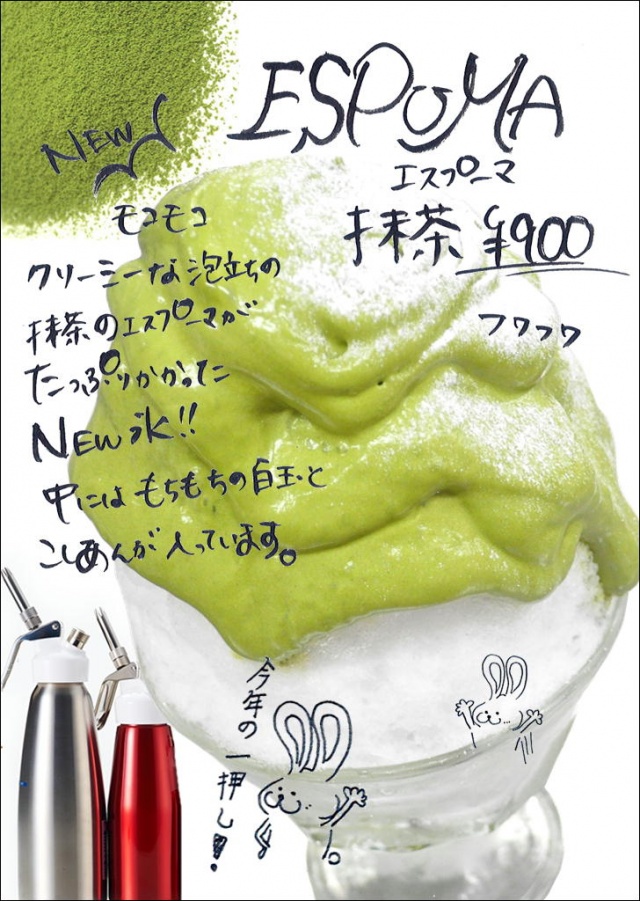 NEW
ESPUMA
エスプーマ
抹茶 ¥900
モコモコ
クリーミーな泡立ちの
抹茶のエスプーマが
たっぷりかかった
NEW 氷!!
中にはもちもちの白玉と
こしあんが入っています。
フワフワ
今年の一押し!